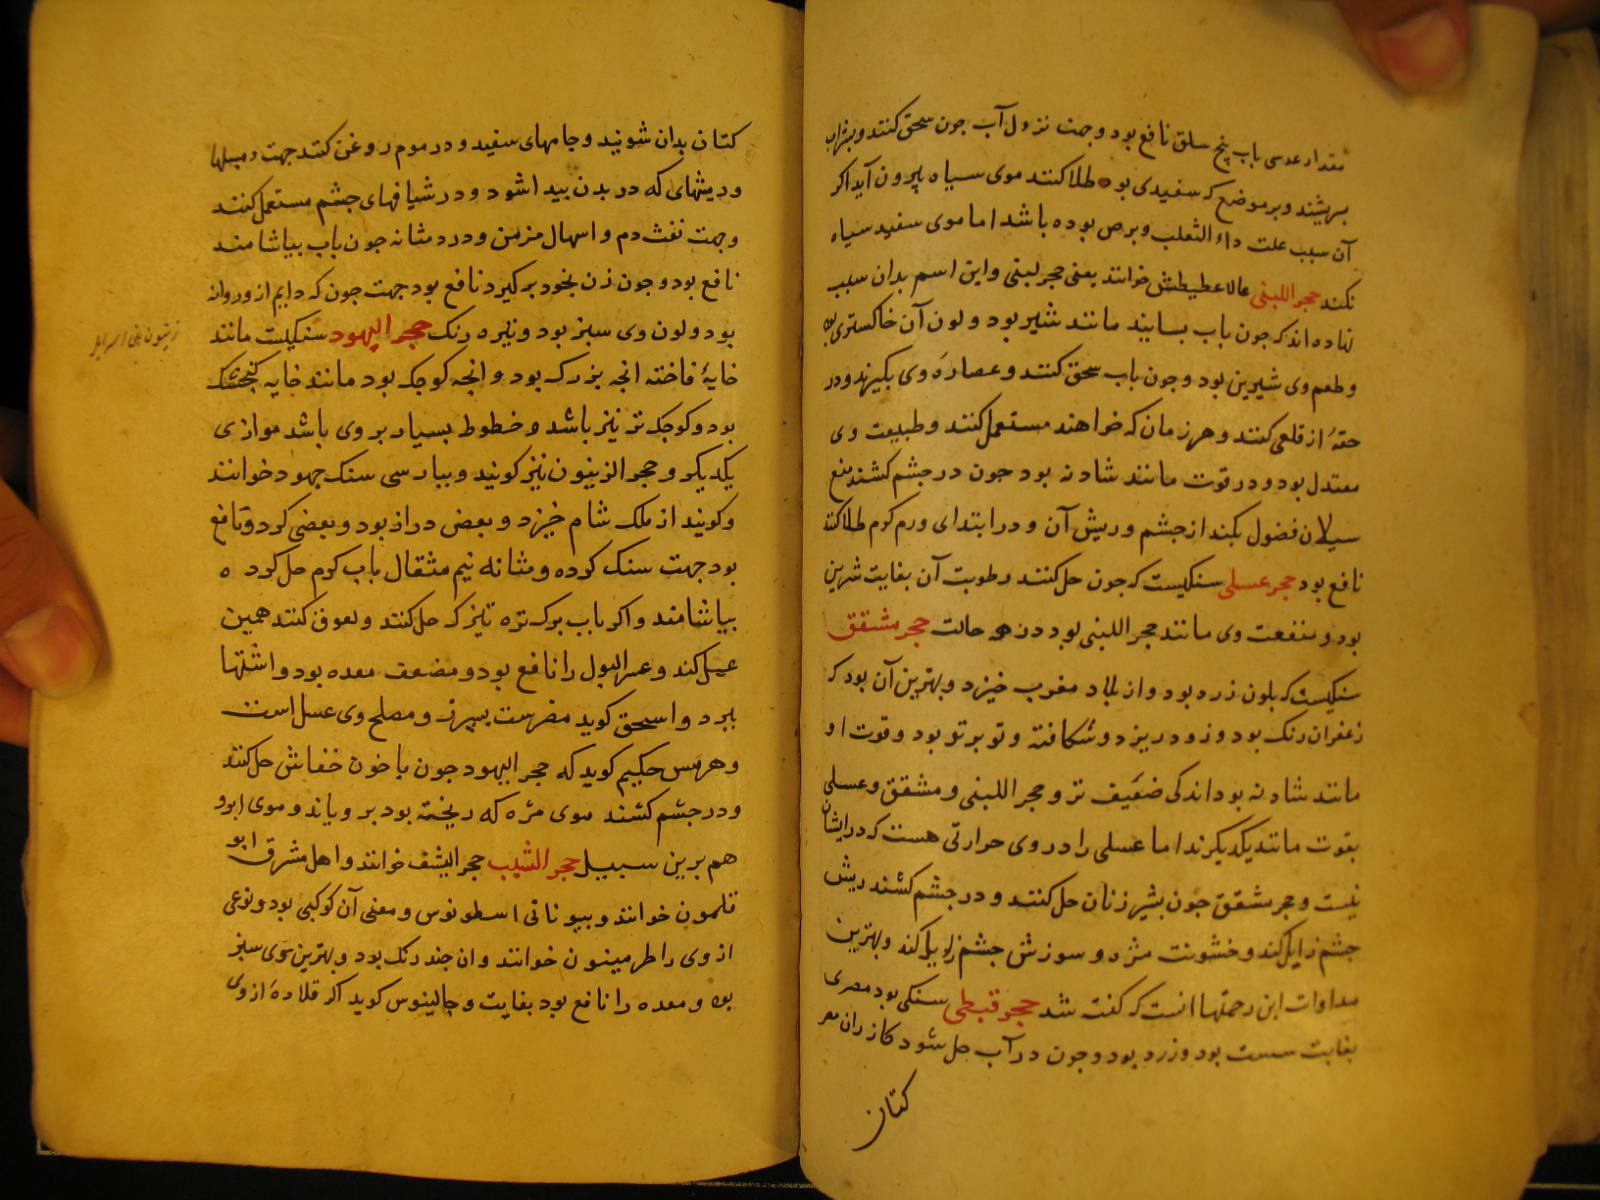 مقدار عدسی باب پنج سلق نافع بود وجهت نزول آب جون سحق کنند وبشراب
بسریشند وبر موضع که سفیدی بود طلا کنند موی سیاه بیرون آید اکر
آن سبب علت داء الثعلب وبرص بوده باشد اما موی سفید سیاه
نکند حجر اللبنی غالاغطیطش خوانند یعنی حجر لبنی واین اسم بدان سبب
نهاده اند که جون باب بسایند مانند شیر بود ولون آن خاکستری بود
وطعم وی شیرین بود وجون باب سحق کنند وعصاره وی بکیرند ودر
حقهٔ از قلعی کنند وهر زمان که خواهند مستعمل کنند وطبیعت وی
معتدل بود ودر قوت مانند شادنه بود جون در جشم کشند منع
سیلان فضول بکند از جشم وریش آن ودر ابتدای ورم کرم طلا کنند
نافع بود حجر عسلی سنکیست که جون حل کنند رطوبت آن بغایت شیرین
بود ومنفعت وی مانند حجر اللبنی بود در همه حالت حجر مشقق
سنکیست که بلون زرد بود واز بلاد مغرب خیزد وبهترین آن بود که
زعفران رنک بود وزود ریزد وشکافته وتو بر تو بود وقوت او
مانند شادنه بود اندکی ضعیف تر وحجر اللبنی ومشقق وعسلی
بقوت مانند یکدیکرند اما عسلی را در وی حرارتی هست که در ایشان
نیست وحجر مشقق جون بشیر زنان حل کنند ودر جشم کشند ریش
جشم زایل کند وخشونت مژه وسوزش جشم زایل کند وبهترین
مداوات این زحمتها انست که کفته شد حجر قبطی سنکی بود مصری
بغایت سست بود وزرد بود وجون در آب حل شود کازران مصر
کتان
کتان بدان شویند وجامهای سفید ودر موم روغن کنند جهت دمیلها
وریشهای که در بدن بیدا شود ودر شیافهای جشم مستعمل کنند
وجهت نفث دم واسهال مزمن ودرد مثانه جون باب بیاشامند
نافع بود وجون زن بخود برکیرد نافع بود جهت خون که دایم ازو روانه
بود ولون وی سبز بود وتیره رنک حجر الیهود سنکیست مانند
زیتون بنی اسرایل
خایهٔ فاخته انجه بزرک بود وانجه کوجک بود مانند خایه کنجشک
بود وکوجک تر نیز باشد وخطوط بسیار بر وی باشد موازی
یکدیکر وحجر الزیتون نیز کویند وببارسی سنک جهود خوانند
وکویند از ملک شام خیزد وبعض دراز بود وبعضی کرد ونافع
بود جهت سنک کرده ومثانه نیم مثقال باب کرم حل کرده
بیاشامند واکر باب برک تره تیزک حل کنند ولعوق کنند همین
عمل کند وعسر البول را نافع بود ومضعف معده بود واشتها
ببرد واسحق کوید مضرست بسپرز ومصلح وی عسل است
وهرمس حکیم کوید که حجر الیهود جون با خون خفاش حل کنند
ودر جشم کشند موی مژه که ریخته بود برویاند وموی ابرو
هم برین سبیل حجر الشیب حجر الیشف خوانند واهل مشرق ابو
قلمون خوانند وبیونانی اسطونوس ومعنی آن کوکبی بود ونوعی
از وی را طرمینون خوانند وان جند رنک بود وبهترین وی سبز
بود ومعده را نافع بود بغایت وجالینوس کوید اکر قلاده از وی